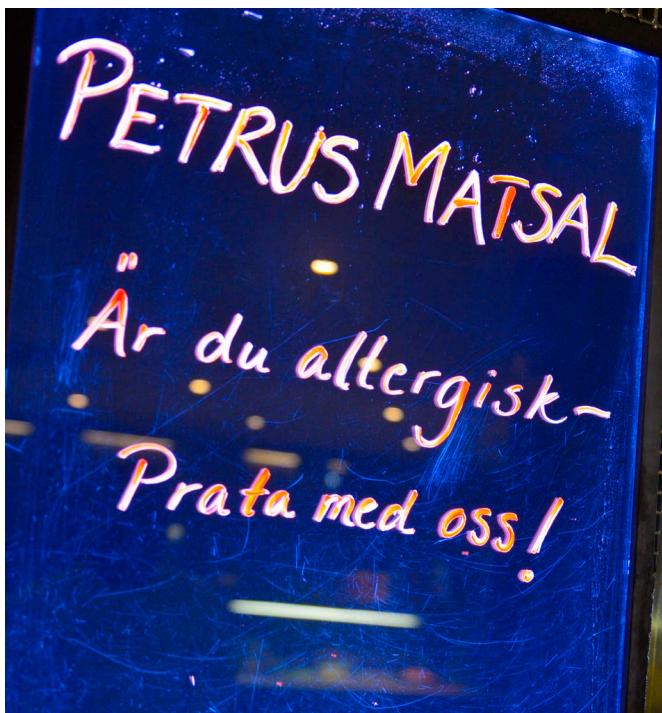 PETRUS MATSAL
Är du allergisk~
Prata med oss!